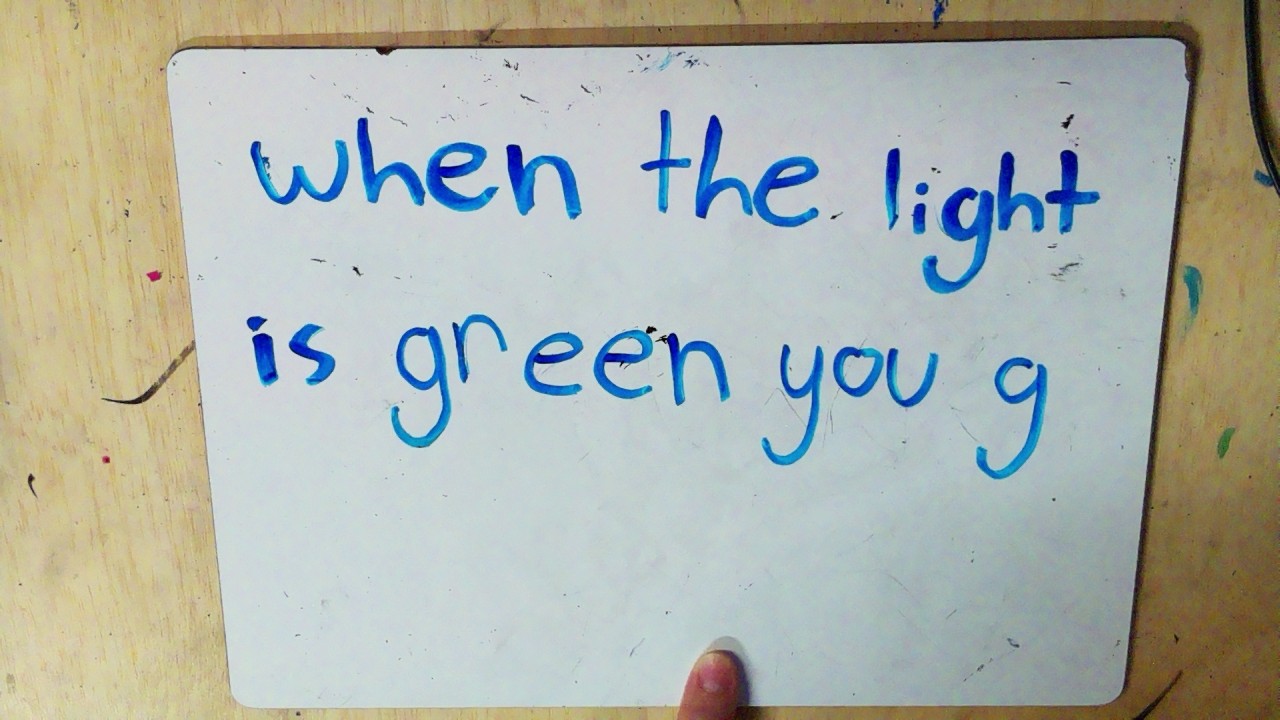 when the light
is green you g